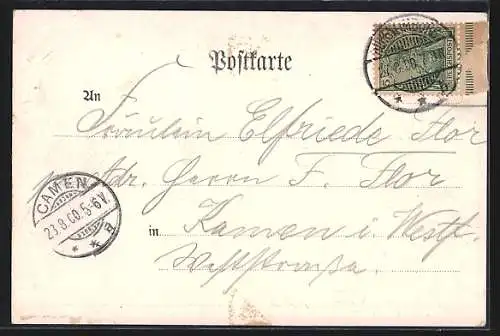 Postkarte
An
Fräulein Elfriede Flor
pr. Adr. Herrn F. Flor
in Kamen i. Westf.
Weststraße.
CAMEN
23.8.00.5-6V.
* * a
* *